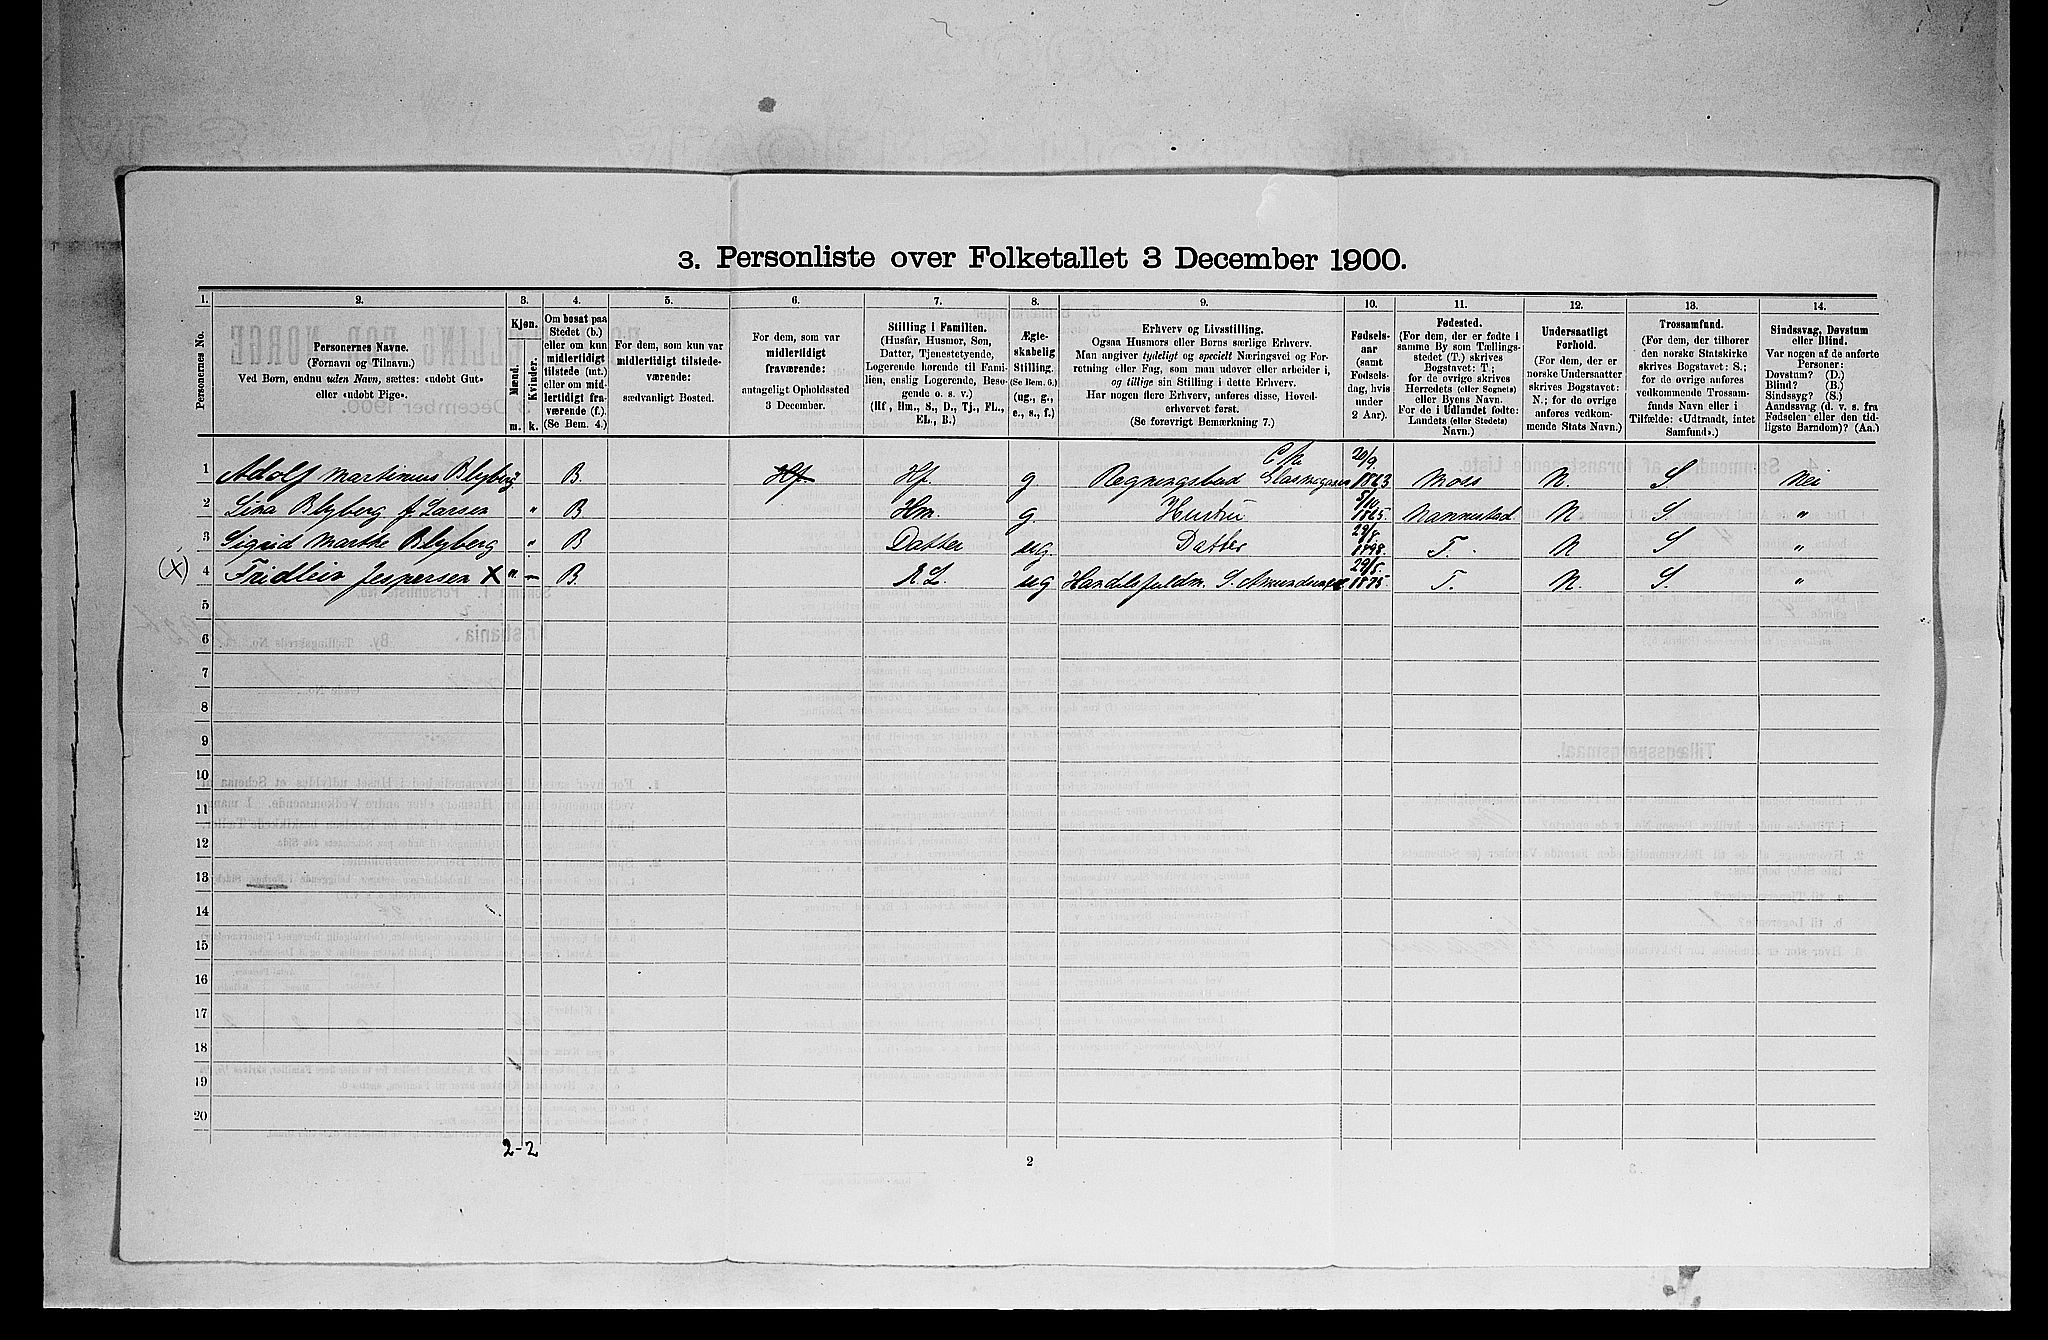 3. Personliste over Folketallet 3 December 1900.
1. 2. 3. 4. 5. 6. 7. 8. 9. 10. 11. 12. 13. 14.
Personernes No.
Personernes Navne.
(Fornavn og Tilnavn.)
Ved Børn, endnu uden Navn, sættes: «udøbt Gut»
eller «udøbt Pige».
Kjøn.
Mænd. Kvinder.
m. k.
Om bosat paa
Stedet (b.)
eller om kun
midlertidigt
tilstede (mt.)
eller om mid-
lertidigt fra-
værende (f.).
(Se Bem. 4.)
For dem, som kun var
midlertidigt tilstede-
værende:
sædvanligt Bosted.
For dem, som var
midlertidigt
fraværende:
antageligt Opholdssted
3 December.
Stilling i Familien.
(Husfar, Husmor, Søn,
Datter, Tjenestetyende,
Logerende hørende til Fami-
lien, enslig Logerende, Besø-
gende o. s. v.)
(Hf., Hm., S., D., Tj., FL.,
EL., B.)
Ægte-
skabelig
Stilling.
(Se Bem. 6.)
(ug., g.,
e., s., f.)
Erhverv og Livsstilling.
Ogsaa Husmors eller Børns særlige Erhverv.
Man angiver tydeligt og specielt Næringsvei og For-
retning eller Fag, som man udøver eller arbeider i,
og tillige sin Stilling i dette Erhverv.
Har nogen flere Erhverv, anføres disse, Hoved-
erhvervet først.
(Se forøvrigt Bemærkning 7.)
Fødsels-
aar
(samt
Fødsels-
dag, hvis
under
2 Aar).
Fødested.
(For dem, der er fødte i
samme By som Tællings-
stedet (T.) skrives
Bogstavet: T;
for de øvrige skrives
Herredets (eller Sognets)
eller Byens Navn.
For de i Udlandet fødte:
Landets (eller Stedets)
Navn.)
Undersaatligt
Forhold.
(For dem, der er
norske Undersaatter
skrives Bogstavet:
N.; for de øvrige
anføres vedkom-
mende Stats Navn.)
Trossamfund.
(For dem, der tilhører
den norske Statskirke
skrives Bogstavet: S.;
for de øvrige anføres
vedkommende Trossam-
funds Navn eller i
Tilfælde: «Udtraadt, intet
Samfund».)
Sindssvag, Døvstum
eller Blind.
Var nogen af de anførte
Personer:
Døvstum? (D.)
Blind? (B.)
Sindssyg? (S.)
Aandssvag (d. v. s. fra
Fødselen eller den tid-
ligste Barndom)? (Aa.)
1 Adolf Martinius Blyberg " B Hf Hf. g. Regningsbud 20/9. 1863 Moss N. S. Nei
2 Lina Blyberg f. Larsen " B Hm. g. Hustru 1865 Nannestad N S. "
3 Sigrid Marthe Blyberg " B Datter ug. Datter 1898. T. N S "
(X) 4 Fridleiv Jespersen X " — B E L. ug Handelsfuldm. 29/5. 1875 T. N S. "
5
6
7
8
9
10
11
12
13
14
15
16
17
18
19
20
2-2
2